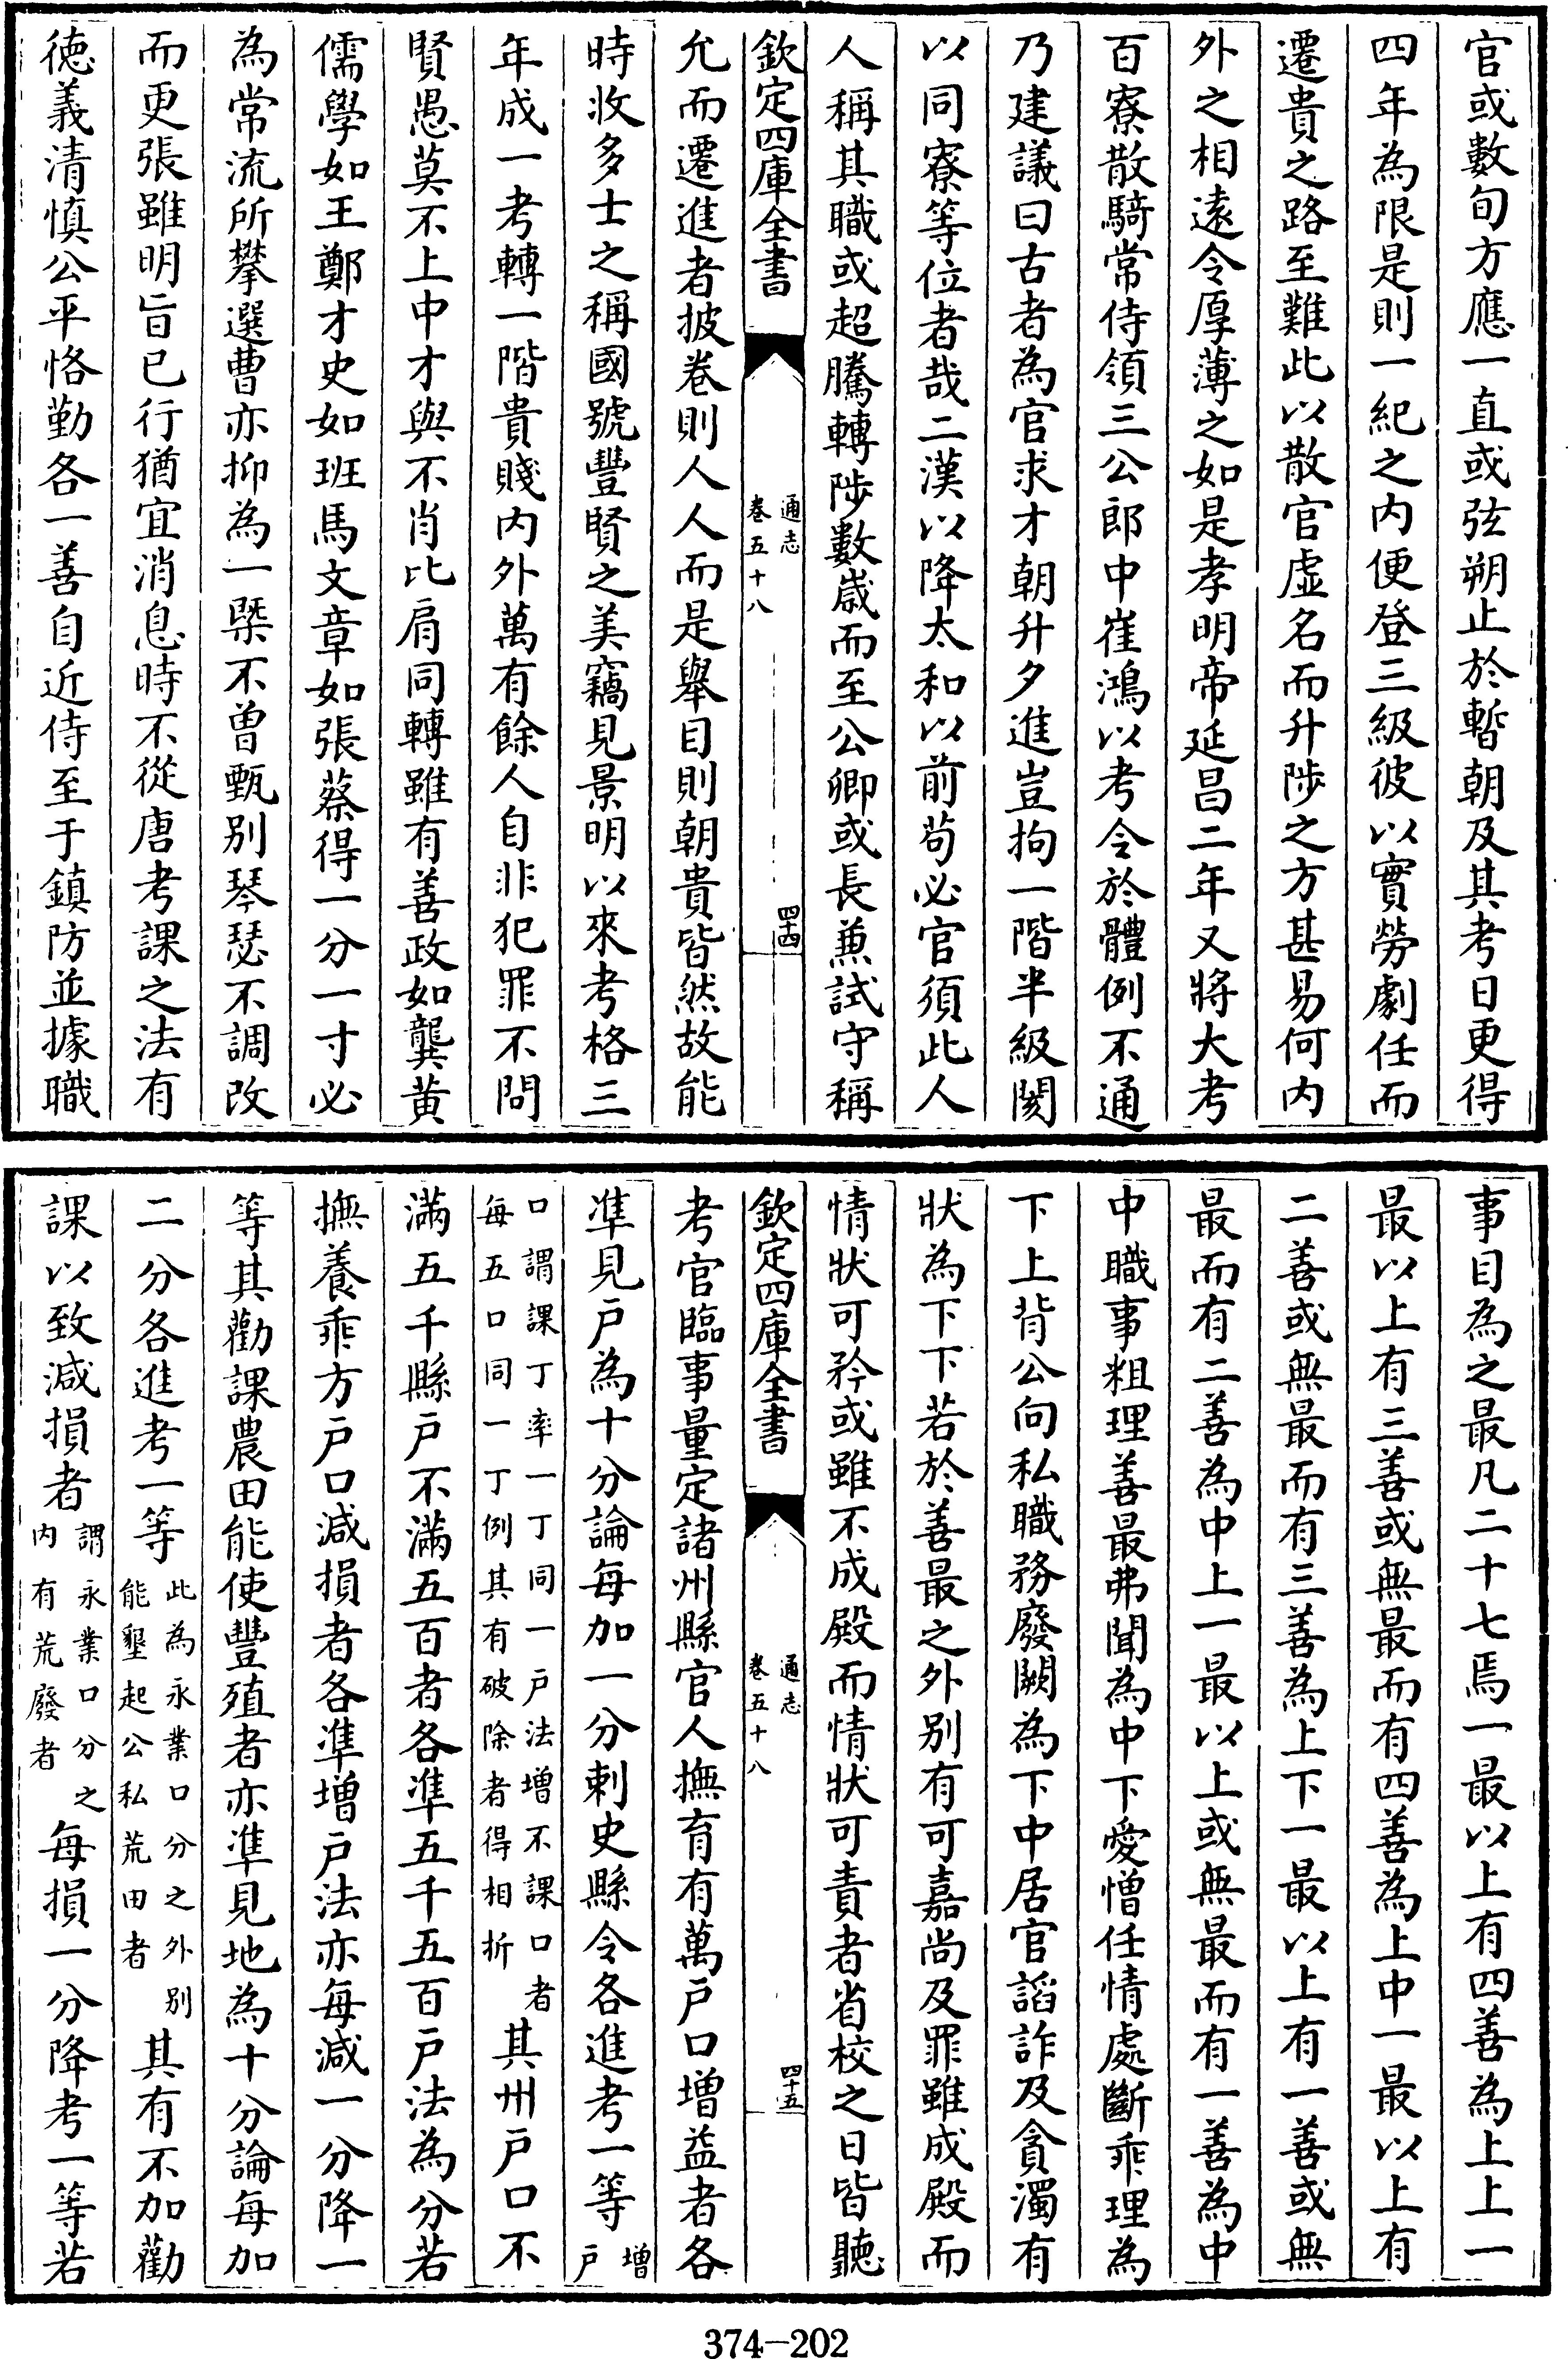 官或數旬方應一直或弦朔止於暫朝及其考日更得
四年為限是則一紀之内便登三級彼以實勞劇任而
遷貴之路至難此以散官虛名而升陟之方甚易何内
外之相遠令厚薄之如是孝明帝延昌二年又將大考
百寮散騎常侍領三公郎中崔鴻以考令於體例不通
乃建議曰古者為官求才朝升夕進豈拘一階半級閡
以同寮等位者哉二漢以降太和以前苟必官須此人
人稱其職或超騰轉陟數嵗而至公卿或長兼試守稱
欽定四庫全書
通志
卷五十八
四十四
允而遷進者披卷則人人而是舉目則朝貴皆然故能
時收多士之稱國號豐賢之美竊見景明以來考格三
年成一考轉一階貴賤内外萬有餘人自非犯罪不問
賢愚莫不上中才與不肖比肩同轉雖有善政如龔黄
儒學如王鄭才史如班馬文章如張蔡得一分一寸必
為常流所攀選曹亦抑為一槩不曽甄别琴瑟不調改
而更張雖明旨已行猶宜消息時不從唐考課之法有
徳義清慎公平恪勤各一善自近侍至于鎮防並據職
事目為之最凡二十七焉一最以上有四善為上上一
最以上有三善或無最而有四善為上中一最以上有
二善或無最而有三善為上下一最以上有一善或無
最而有二善為中上一最以上或無最而有一善為中
中職事粗理善最弗聞為中下愛憎任情處斷乖理為
下上背公向私職務廢闕為下中居官謟詐及貪濁有
狀為下下若於善最之外别有可嘉尚及罪雖成殿而
情狀可矜或雖不成殿而情狀可責者省校之日皆聽
欽定四庫全書
通志
卷五十八
四十五
考官臨事量定諸州縣官人撫育有萬戸口増益者各
凖見戸為十分論每加一分刺史縣令各進考一等増戸
口謂課丁率一丁同一戸法増不課口者每五口同一丁例其有破除者得相折其州戸口不
滿五千縣戸不滿五百者各凖五千五百戸法為分若
撫養乖方戸口減損者各凖増戸法亦每減一分降一
等其勸課農田能使豐殖者亦凖見地為十分論每加
二分各進考一等此為永業口分之外别能墾起公私荒田者其有不加勸
課以致減損者謂永業口分之内有荒廢者每損一分降考一等若
374-202